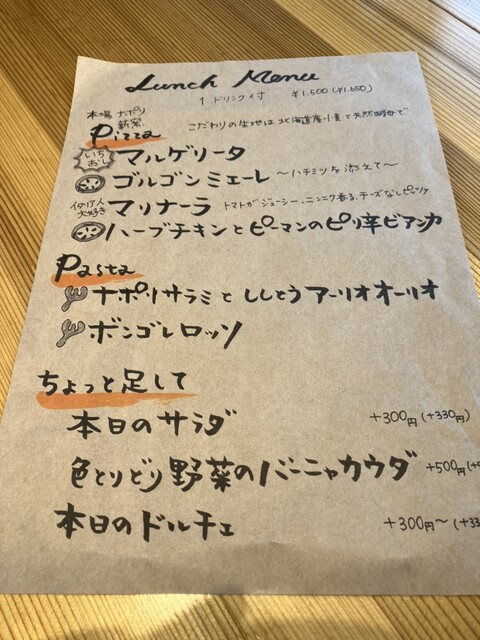 Lunch Menu
1ドリンク付 ¥1,500(¥1,650)
本場ナポリ
薪窯
Pizza こだわりの生地は北海道産小麦と天然酵母で
いちおし マルゲリータ
ゴルゴンミエーレ 〜ハチミツを添えて〜
イタリア人大好き マリナーラ トマトがジューシー、ニンニク香る、チーズなしピッツァ
ハーブチキンとピーマンのピリ辛ビアンカ
Pasta
ナポリサラミとししとうアーリオオーリオ
ボンゴレロッソ
ちょっと足して
本日のサラダ +300円(+330円)
色とりどり野菜のバーニャカウダ +500円(+5
本日のドルチェ +300円〜(+33